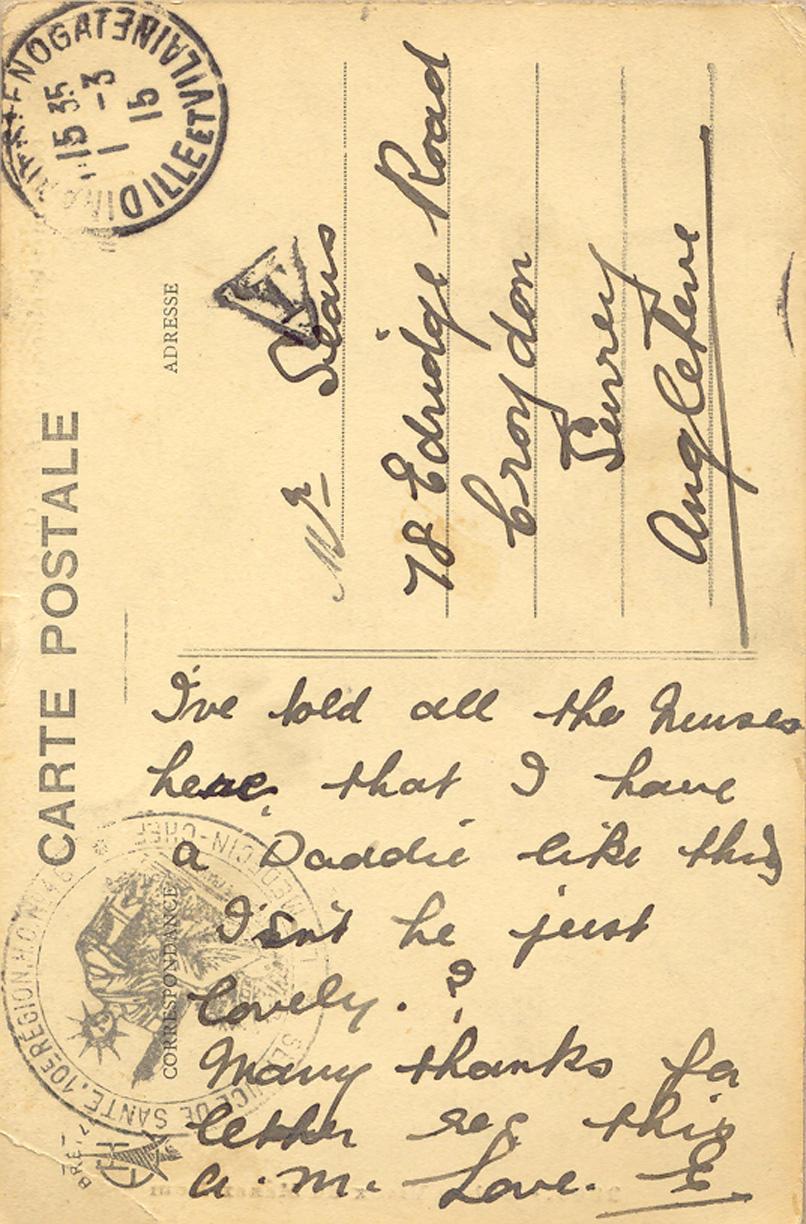 CARTE POSTALE
ADRESSE
CORRESPONDANCE
ILLE ET VILAINE
15 35
1 - 3
15
T
Mr Sears
78 Edridge Road
Croydon
Surrey
Angleterre
SERVICE DE SANTE, 10E RÉGION
MÉDECIN-CHEF
I've told all the Nurses
here that I have
a Daddie like this
Isn't he just
lovely. ?
Many thanks for
letter rec this
a.m. Love. E.